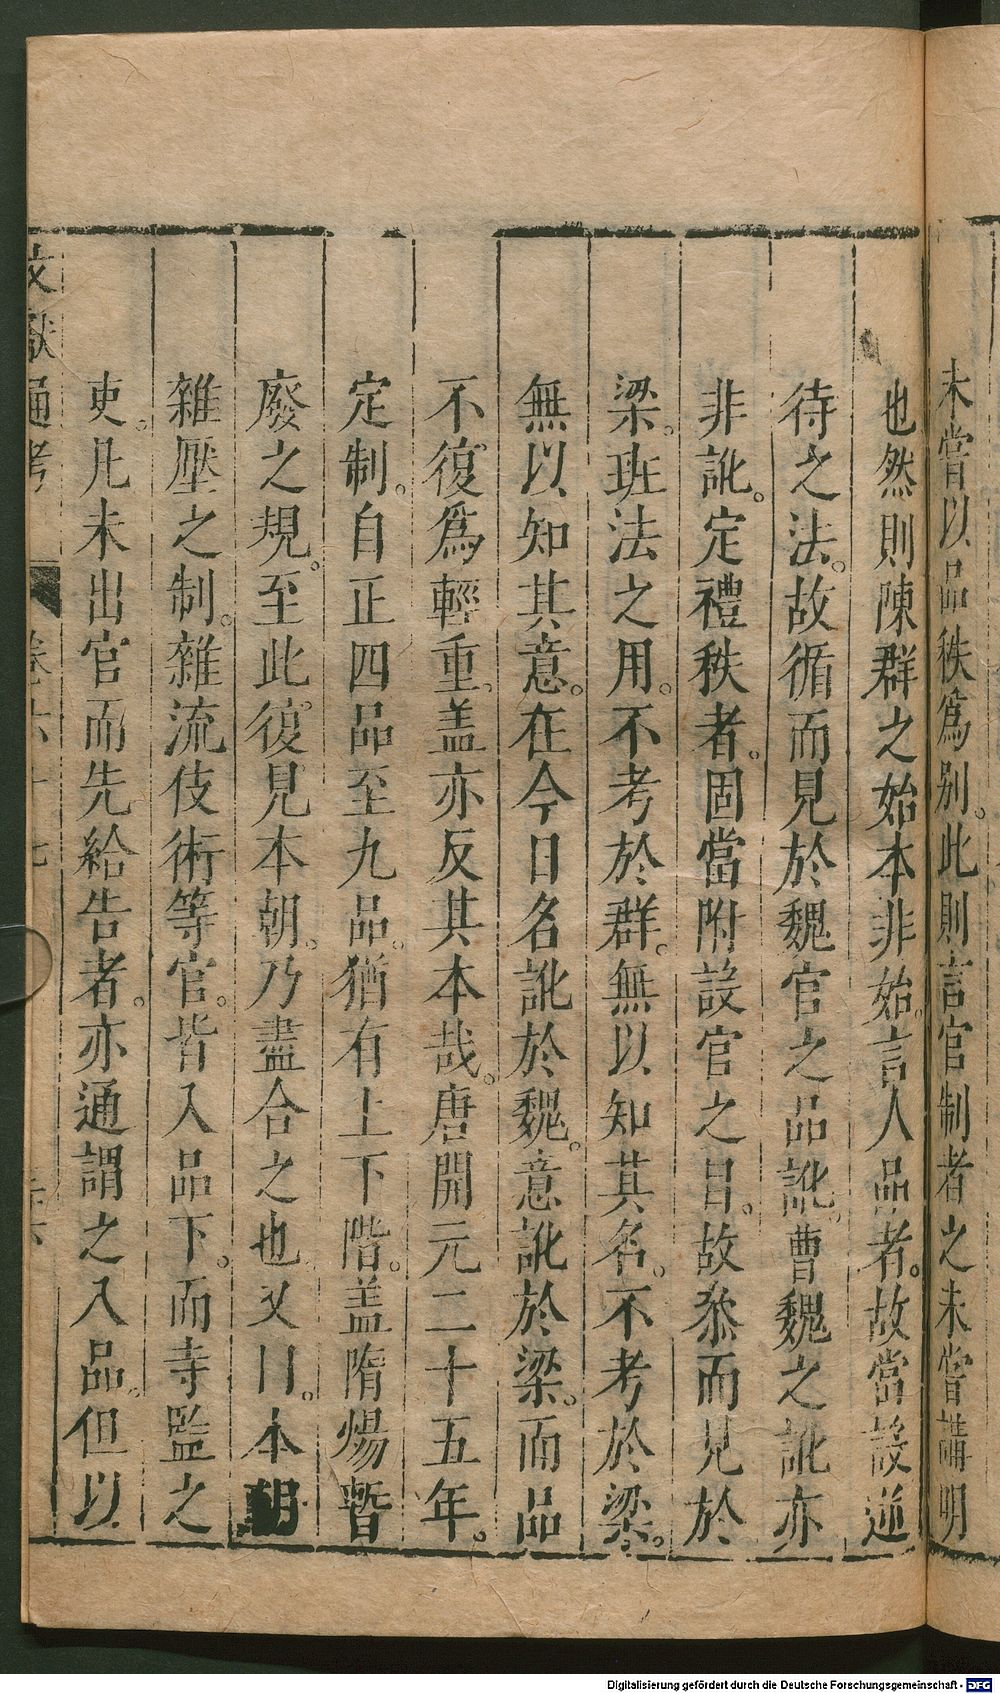 未嘗以品秩爲别。此則言官制者之未嘗講明
也然則陳群之始本非始。言人品者。故當設逆
待之法。故循而見於魏官之品訛。曹魏之訛亦
非訛。定禮秩者。固當附設官之目。故㳟而見於
梁。班法之用。不考於群。無以知其名。不考於梁。
無以知其意。在今日名訛於魏。意訛於梁。而品
不復爲輕重。盖亦反其本哉。唐開元二十五年。
定制。自正四品至九品。猶有上下階。盖隋煬暫
廢之規。至此復見本朝。乃盡合之也又曰。本朝
雜壓之制。雜流伎術等官。皆入品下。而寺監之
吏。凡未出官而先給告者。亦通謂之入品。但以
文獻通考 卷六十七
Digitalisierung gefördert durch die Deutsche Forschungsgemeinschaft - DFG